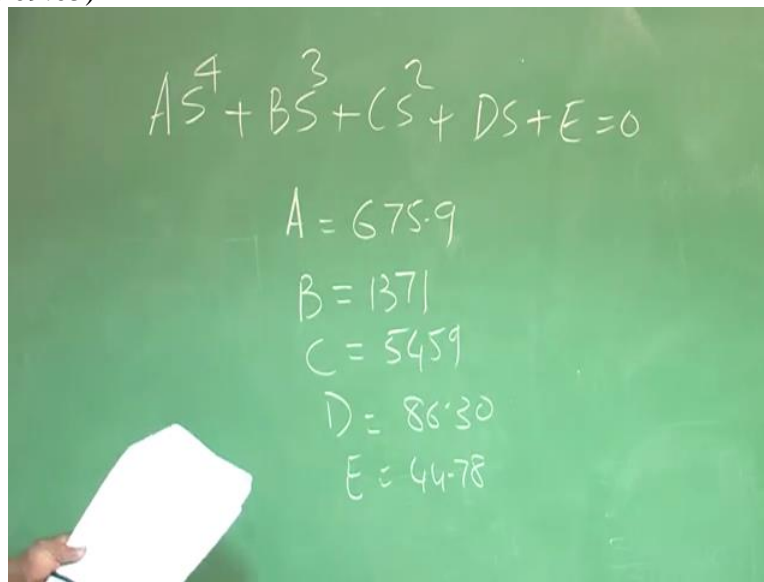 AS⁴+BS³+CS²+DS+E=0
A = 675.9
B = 1371
C = 5459
D = 86.30
E = 44.78